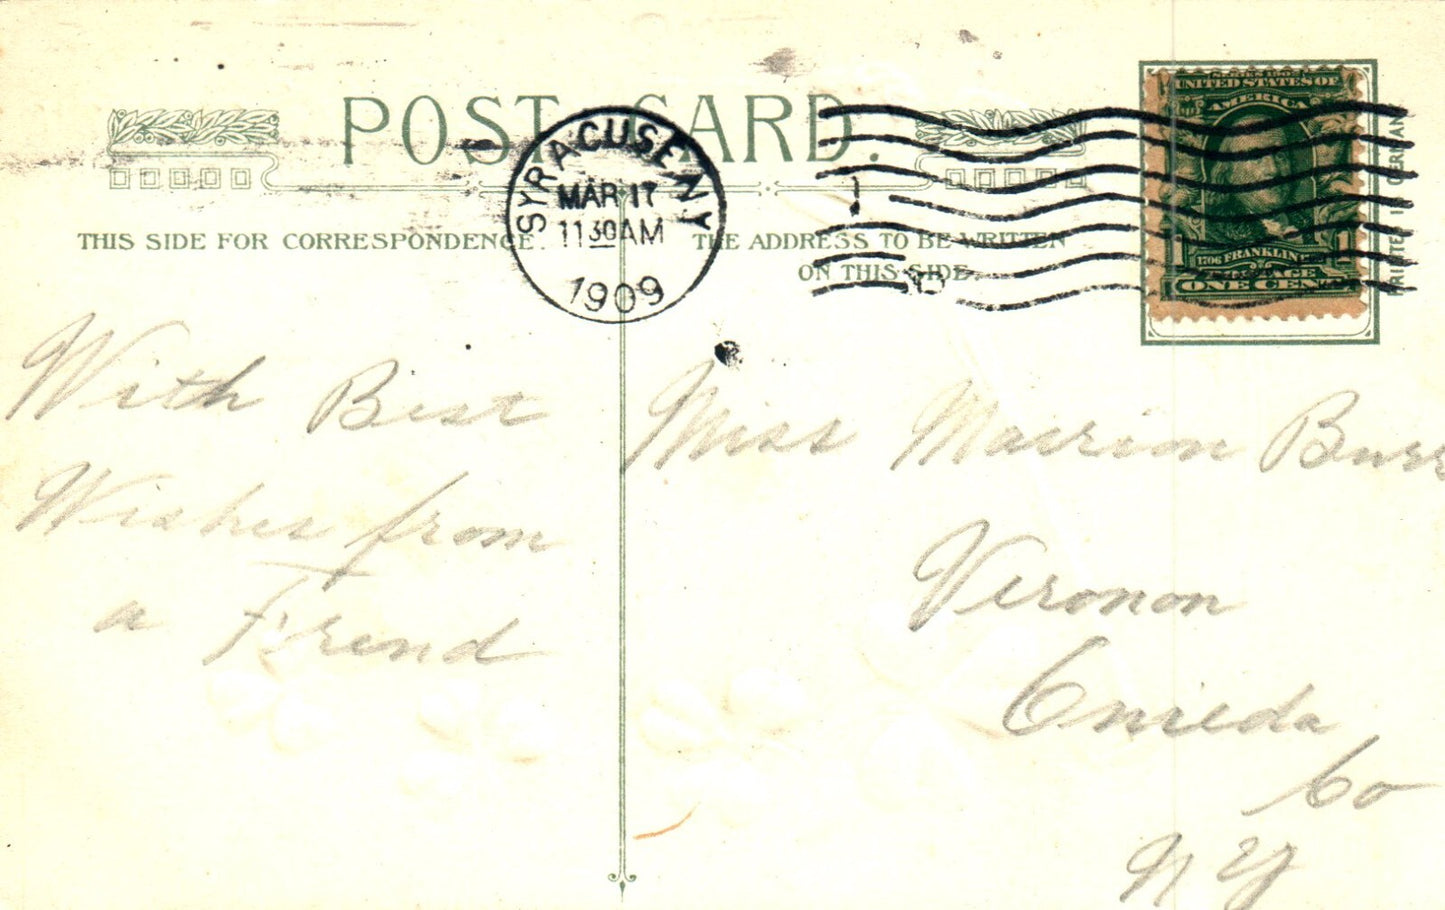 POST CARD.
SYRACUSE, N.Y.
MAR 17
11 30 AM
1909
1
SERIES 1902
UNITED STATES OF
AMERICA
1706 FRANKLIN
POSTAGE
ONE CENT
THIS SIDE FOR CORRESPONDENCE.
THE ADDRESS TO BE WRITTEN
ON THIS SIDE.
PRINTED IN GERMANY
With Best
Wishes from
a Frend
Miss Marion Burr
Vernon
Oneida
Co
N Y